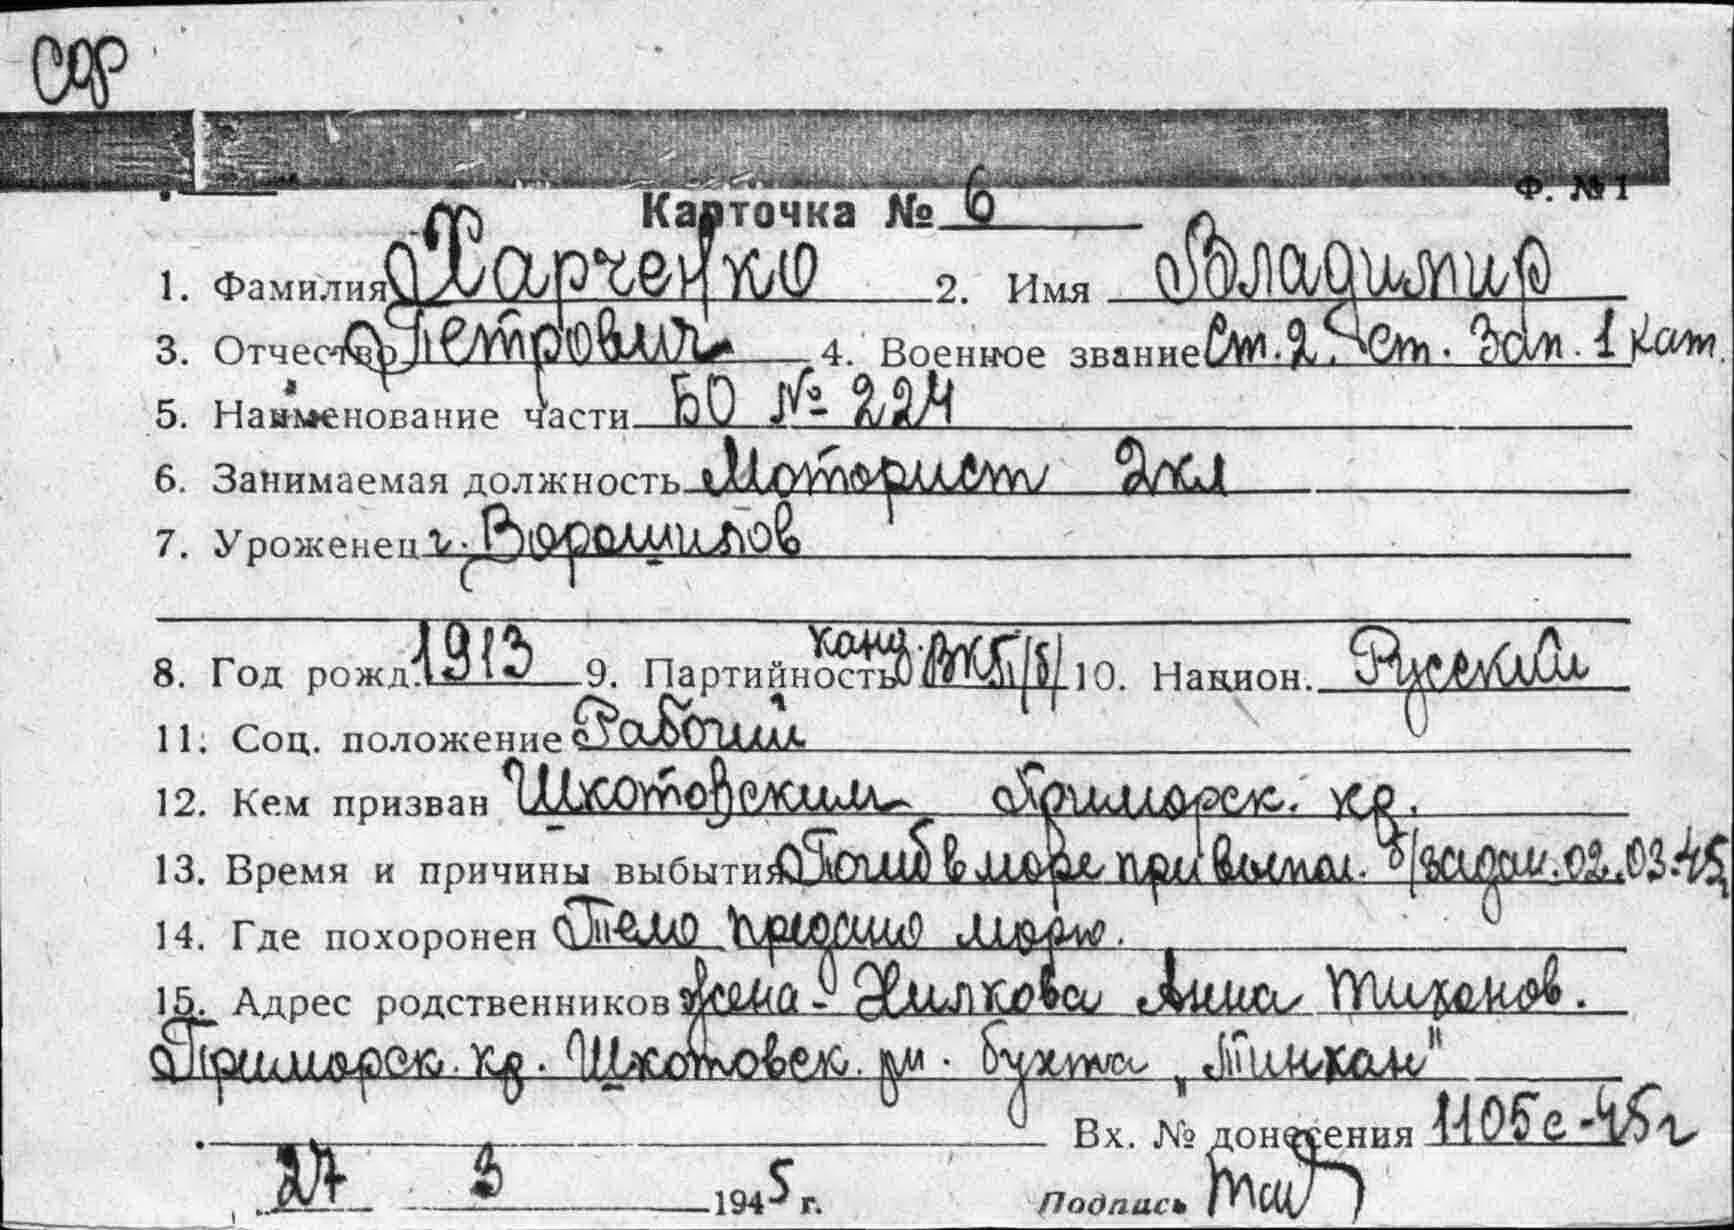 СФ
Ф. № 1
Карточка № 6
1. Фамилия Харченко 2. Имя Владимир
3. Отчество Петрович 4. Военное звание Ст. 2 ст. зап. 1 кат.
5. Наименование части БО № 224
6. Занимаемая должность Моторист 2кл
7. Уроженец г. Ворошилов
8. Год рожд. 1913 9. Партийность канд. ВКП/б/ 10. Национ. Русский
11. Соц. положение Рабочий
12. Кем призван Шкотовским Приморск. кр.
13. Время и причины выбытия Погиб в море при выпол. б/задан. 02.03.45
14. Где похоронен Тело предано морю.
15. Адрес родственников жена - Хилкова Анна Тихонов.
Приморск. кр. Шкотовск. рн. бухта „Тинкан"
Вх. № донесения 1105с-45г
27 3 1945 г. Подпись